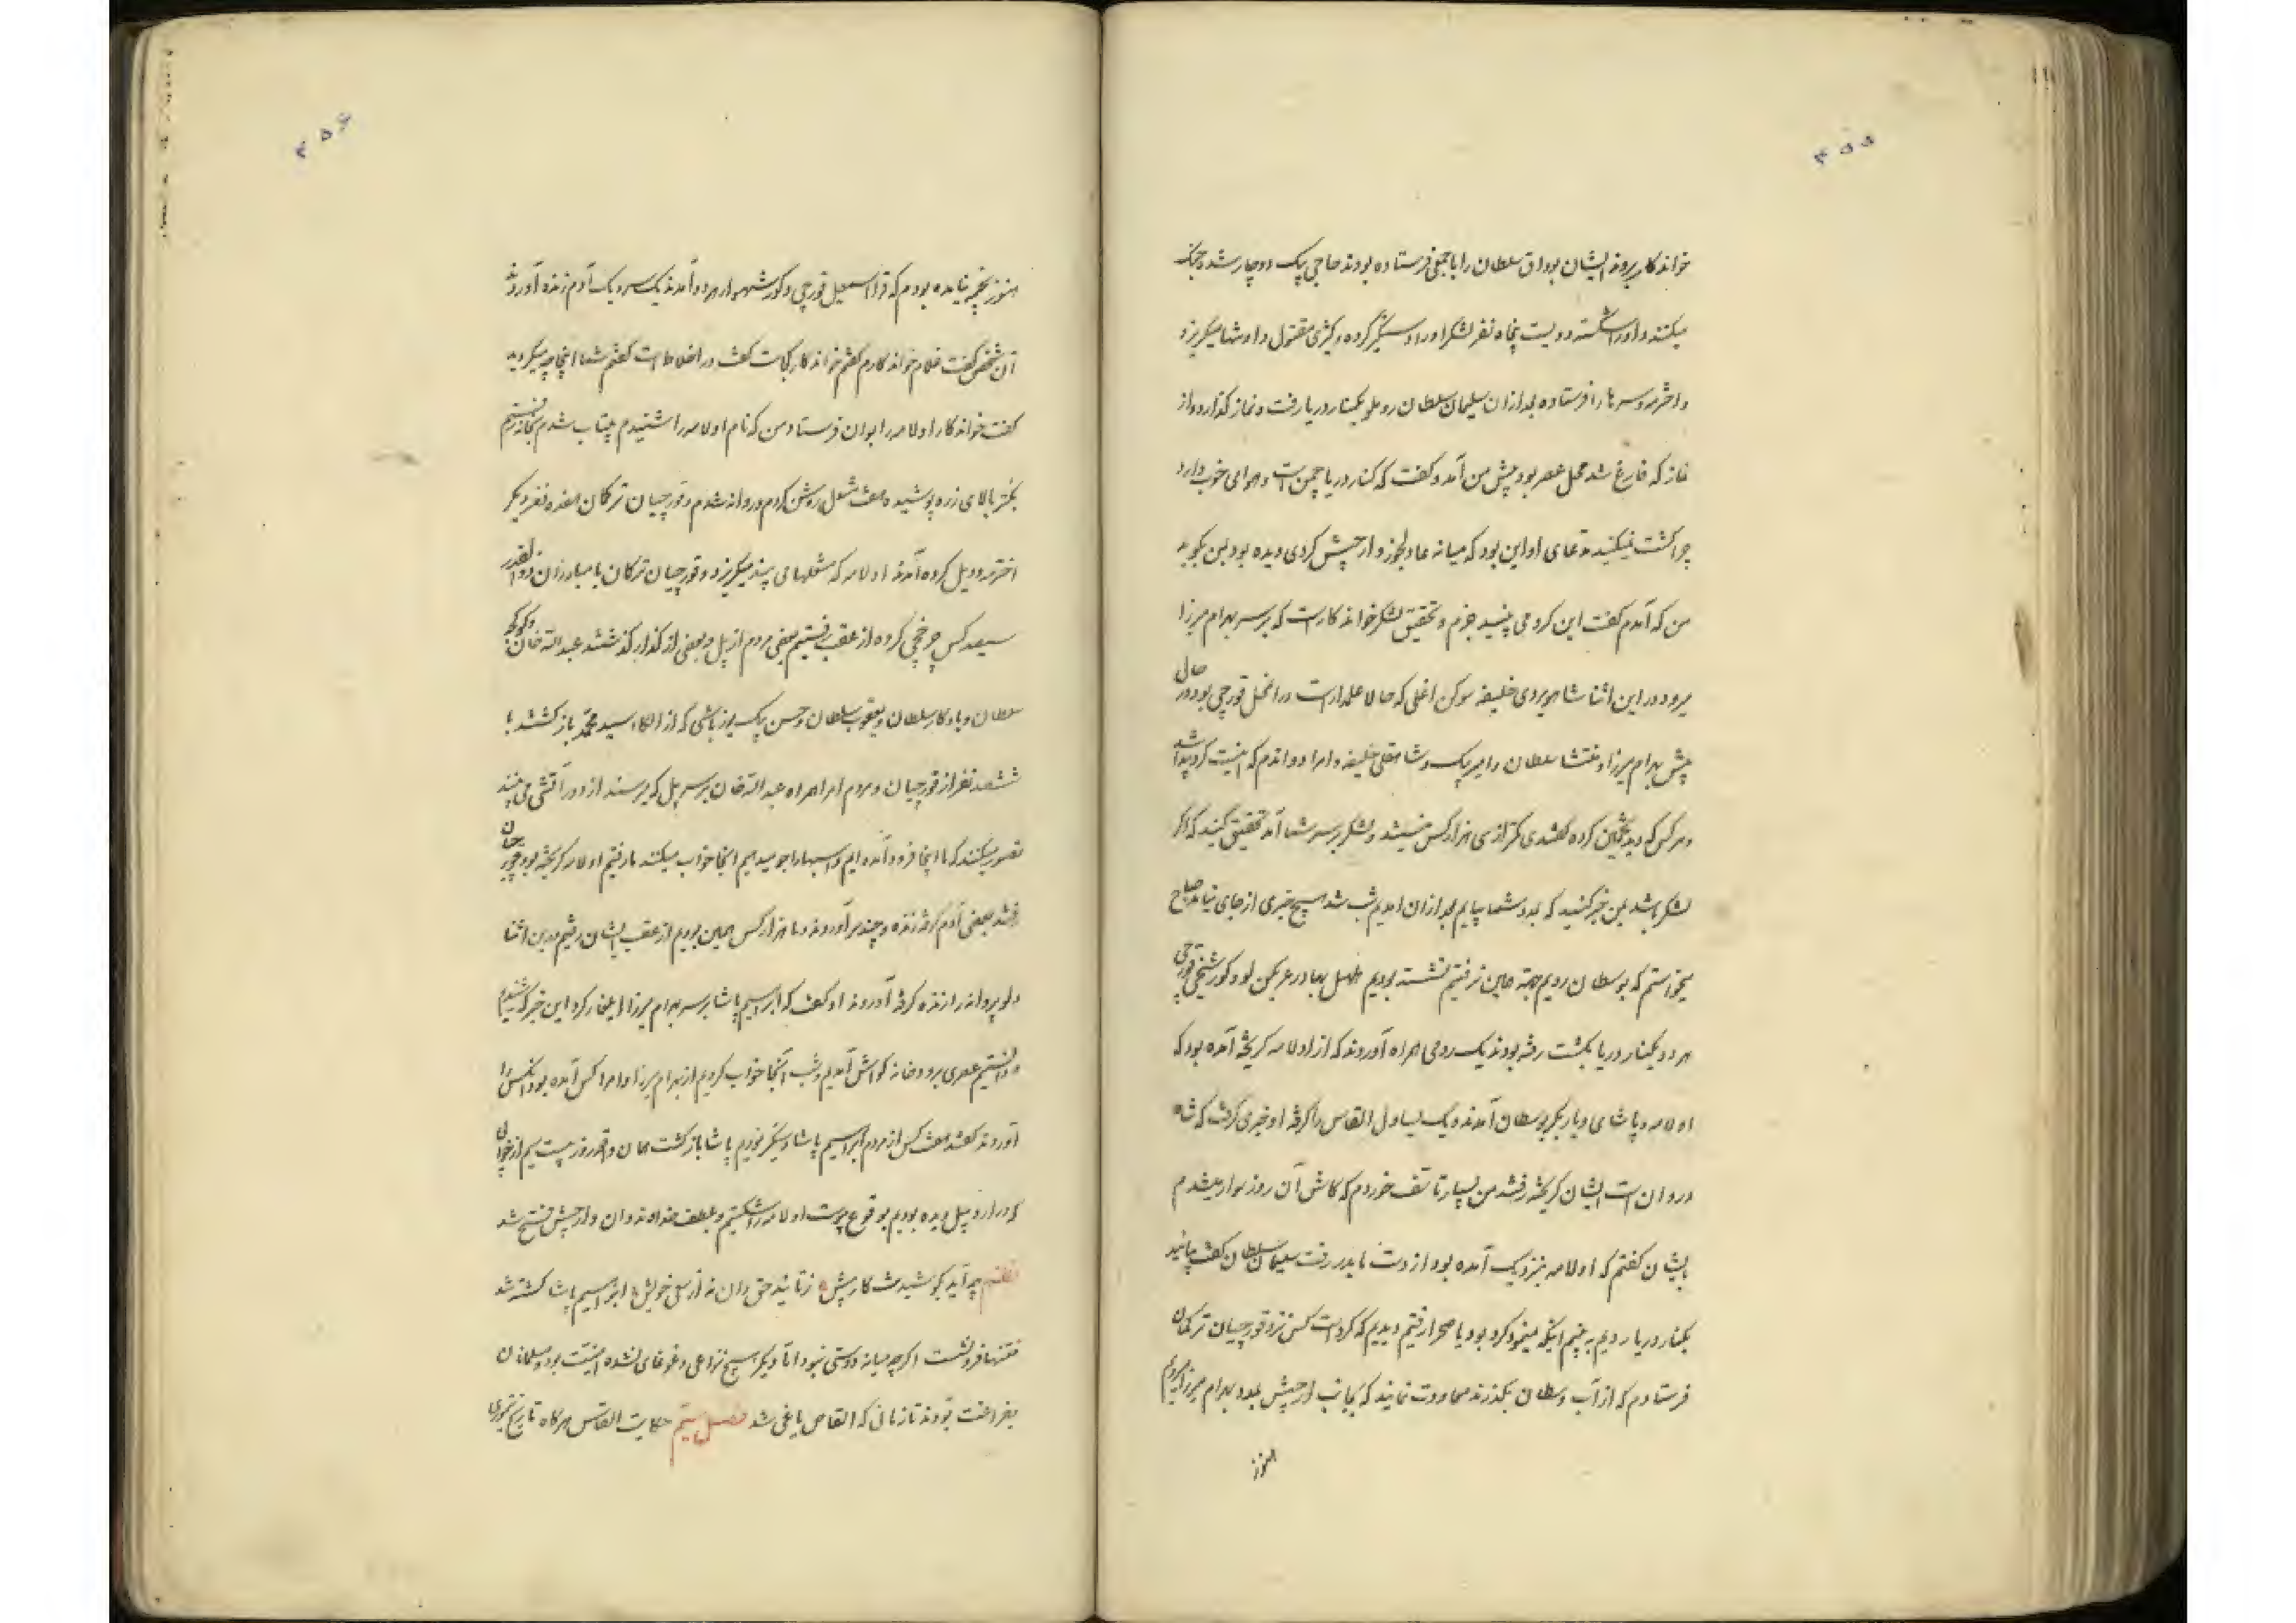 ۲۵۵
خواندکار بروند ایشان بوداق سلطان را با جمعی فرستاده بودند حاجی بیک دوچار شده جنک
میکنند و او را شکسته دویست پنجاه نفر لشکر او را دستگیر کرده و کثیری مقتول و او تنها میکریزد
و اخترمه و سرها را فرستاده بعد ازان سلیمان سلطان روملو بکنار دریا رفت و نماز کذارد و از
نماز که فارغ شد محل عصر بود پیش من آمد و کفت که کنار دریا چمن است و هوای خوب دارد
چرا کشت نمیکنید مدعای او این بود که میانه عادلجوز و ارجیش کردی دیده بود بمن بکوید
من که آمدم کفت این کرد می بینید جزم و تحقیق لشکر خواندکار است که بر سر بهرام میرزا
میرود در این اثنا شاهویردی خلیفه سوکن اغلی که حالا علمدار است در انمحل قورچی بود در حال
پیش بهرام میرزا و منتشا سلطان و امیر بیک و شاهقلی خلیفه و امرا دواندم که اینست کرد پیدا شد
و هر کس که دید تخمین کرده کفتندی کمتر از سی هزار کس نیستند و لشکر بر سر شما آمد تحقیق کنید که اکر
لشکر باشد بمن خبر کنید که بمدد شما بیایم بعد ازان امدیم شب شد هیچ خبری از جای نیامد صباح
میخواستم که بوسطان رویم جهة همین نرفتیم نشسته بودیم خلیل بهادر عربکرلو و کور شیخی قورچی
هر دو بکنار دریا بکشت رفته بودند یک رومی همراه آوردند که از اولامه کریخته آمده بود که
اولامه و پاشای دیاربکر بوسطان آمدند و یک یساول القاس را کرفته او خبر می کرفت که شاه
در وان است ایشان کریخته رفتند من بسیار تاسف خوردم که کاش آن روز سوار میشدم
بایشان کفتم که اولامه بنزدیک آمده بود از دست ما بدر رفت سلیمان سلطان کفت بیائید
بکنار دریا رویم به بینیم اینکه مینمود کرد بود یا صحرا رفتیم دیدیم که کرد است کس نزد قورچیان ترکمان
فرستادم که از آب وسطان بکذرند معاودت نمایند که بجانب ارجیش بمدد بهرام میرزا میرویم
هنوز
۲۵۶
هنوز بخیمه نیامده بودم که قرا اسمعیل قورچی و کور شهسوار هر دو آمدند یک سر و یک آدم زنده آوردند
آن شخص کفت غلام خواندکارم کفتم خواندکار کجاست کفت در اخلاط است کفتم شما اینجا چه میکردید
کفت خواندکار اولامه را بوان فرستاد من که نام اولامه را شنیدم بیتاب شدم بخانه رفتم
بکتر بالای زره پوشیده هفت مشعل روشن کردم و روانه شدم و قورچیان ترکمان هفده نفر دیکر
اخترمه و دیل کرده آمدند اولامه که مشعلها می بیند میکریزد و قورچیان ترکمان با مبارزان ذوالقدر
سیصد کس چرخچی کرده از عقب رفتیم بعضی مردم از پل و بعضی از کذار کذشتند عبدالله خان و کوکجه
سلطان و یادکار سلطان و یعقوب سلطان و حسن بیک یوزباشی که از الکاء سید محمد باز کشتند با
ششصد نفر از قورچیان و مردم امرا همراه عبدالله خان بر سر پل که برسند از دور آتشی می بینند
تصور میکنند که ما اینجا فرود آمده ایم و اسبها را جو میدهیم اینجا خواب میکنند ما رفتیم اولامه کریخته بود قورچیان
رفتند بعضی آدم کرفته زنده و چند سر آوردند و ما هزار کس همین بودیم از عقب ایشان رفتیم بدین اثنا
دلو پروانه را زنده کرفته آوردند او کفت که ابراهیم پاشا بر سر بهرام میرزا ایلغار کرد این خبر که شنیدیم
عصری برودخانه کواش آمدیم و شب آنجا خواب کردیم از بهرام میرزا و امرا کس آمده بود
آوردند کفتند هفت کس از مردم ابراهیم پاشا دستگیر نمودیم پاشا باز کشت همان و قمر روز بیست سیم از خوابی
که در اردبیل دیده بودیم بوقوع پیوست اولامه را شکستیم و بلطف خداوند وان و ارجیش فتح شد
نظم چه آید بکوشیدنت کار پیش ز تائید حق دان نه از سعی خویش ابراهیم پاشا کشته شد
فتنها فرونشست اکرچه میانه دوستی نبود اما دیکر هیچ نزاعی و غوغای نشده امنیت بود و مسلمانان
بفراغت بودند تا زمانی که القاص یاغی شد فصل ستم حکایت القاس هرکاه تاریخ تیموری